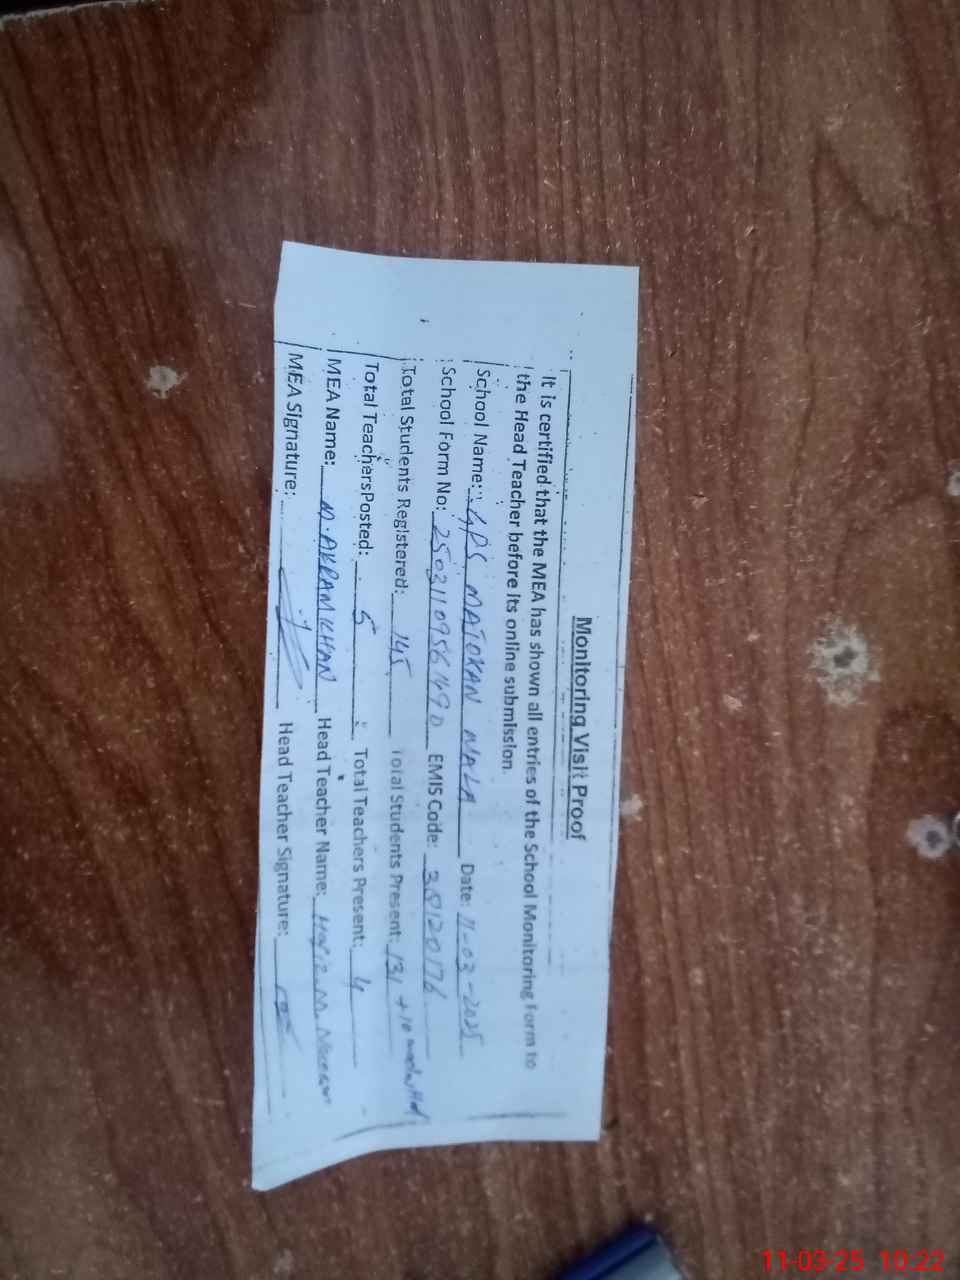 Monitoring Visit Proof
It is certified that the MEA has shown all entries of the School Monitoring Form to
the Head Teacher before its online submission.
School Name: GPS MATOKAN WALA Date: 11-03-2025
School Form No: EMIS Code: 38120176
Total Students Registered: 145 Total Students Present: 131 + 10
Total Teachers Posted: 5 Total Teachers Present: 4
MEA Name: M. AKRAM KHAN Head Teacher Name: Hafiz M.
MEA Signature: Head Teacher Signature:
11-03-25 10:22